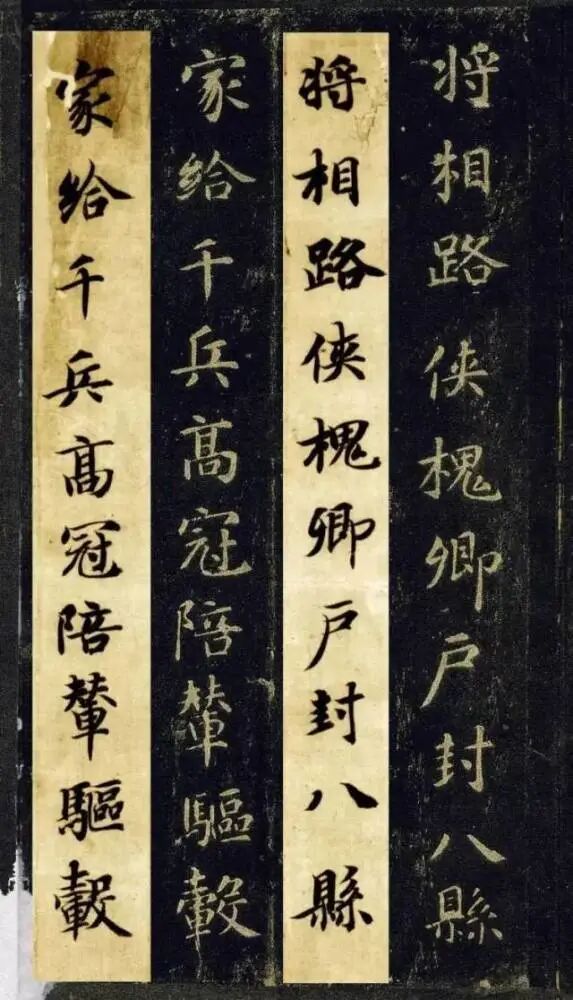 将相路侠槐卿户封八縣
将相路侠槐卿户封八縣
家给千兵高冠陪輦驅轂
家给千兵高冠陪輦驅轂